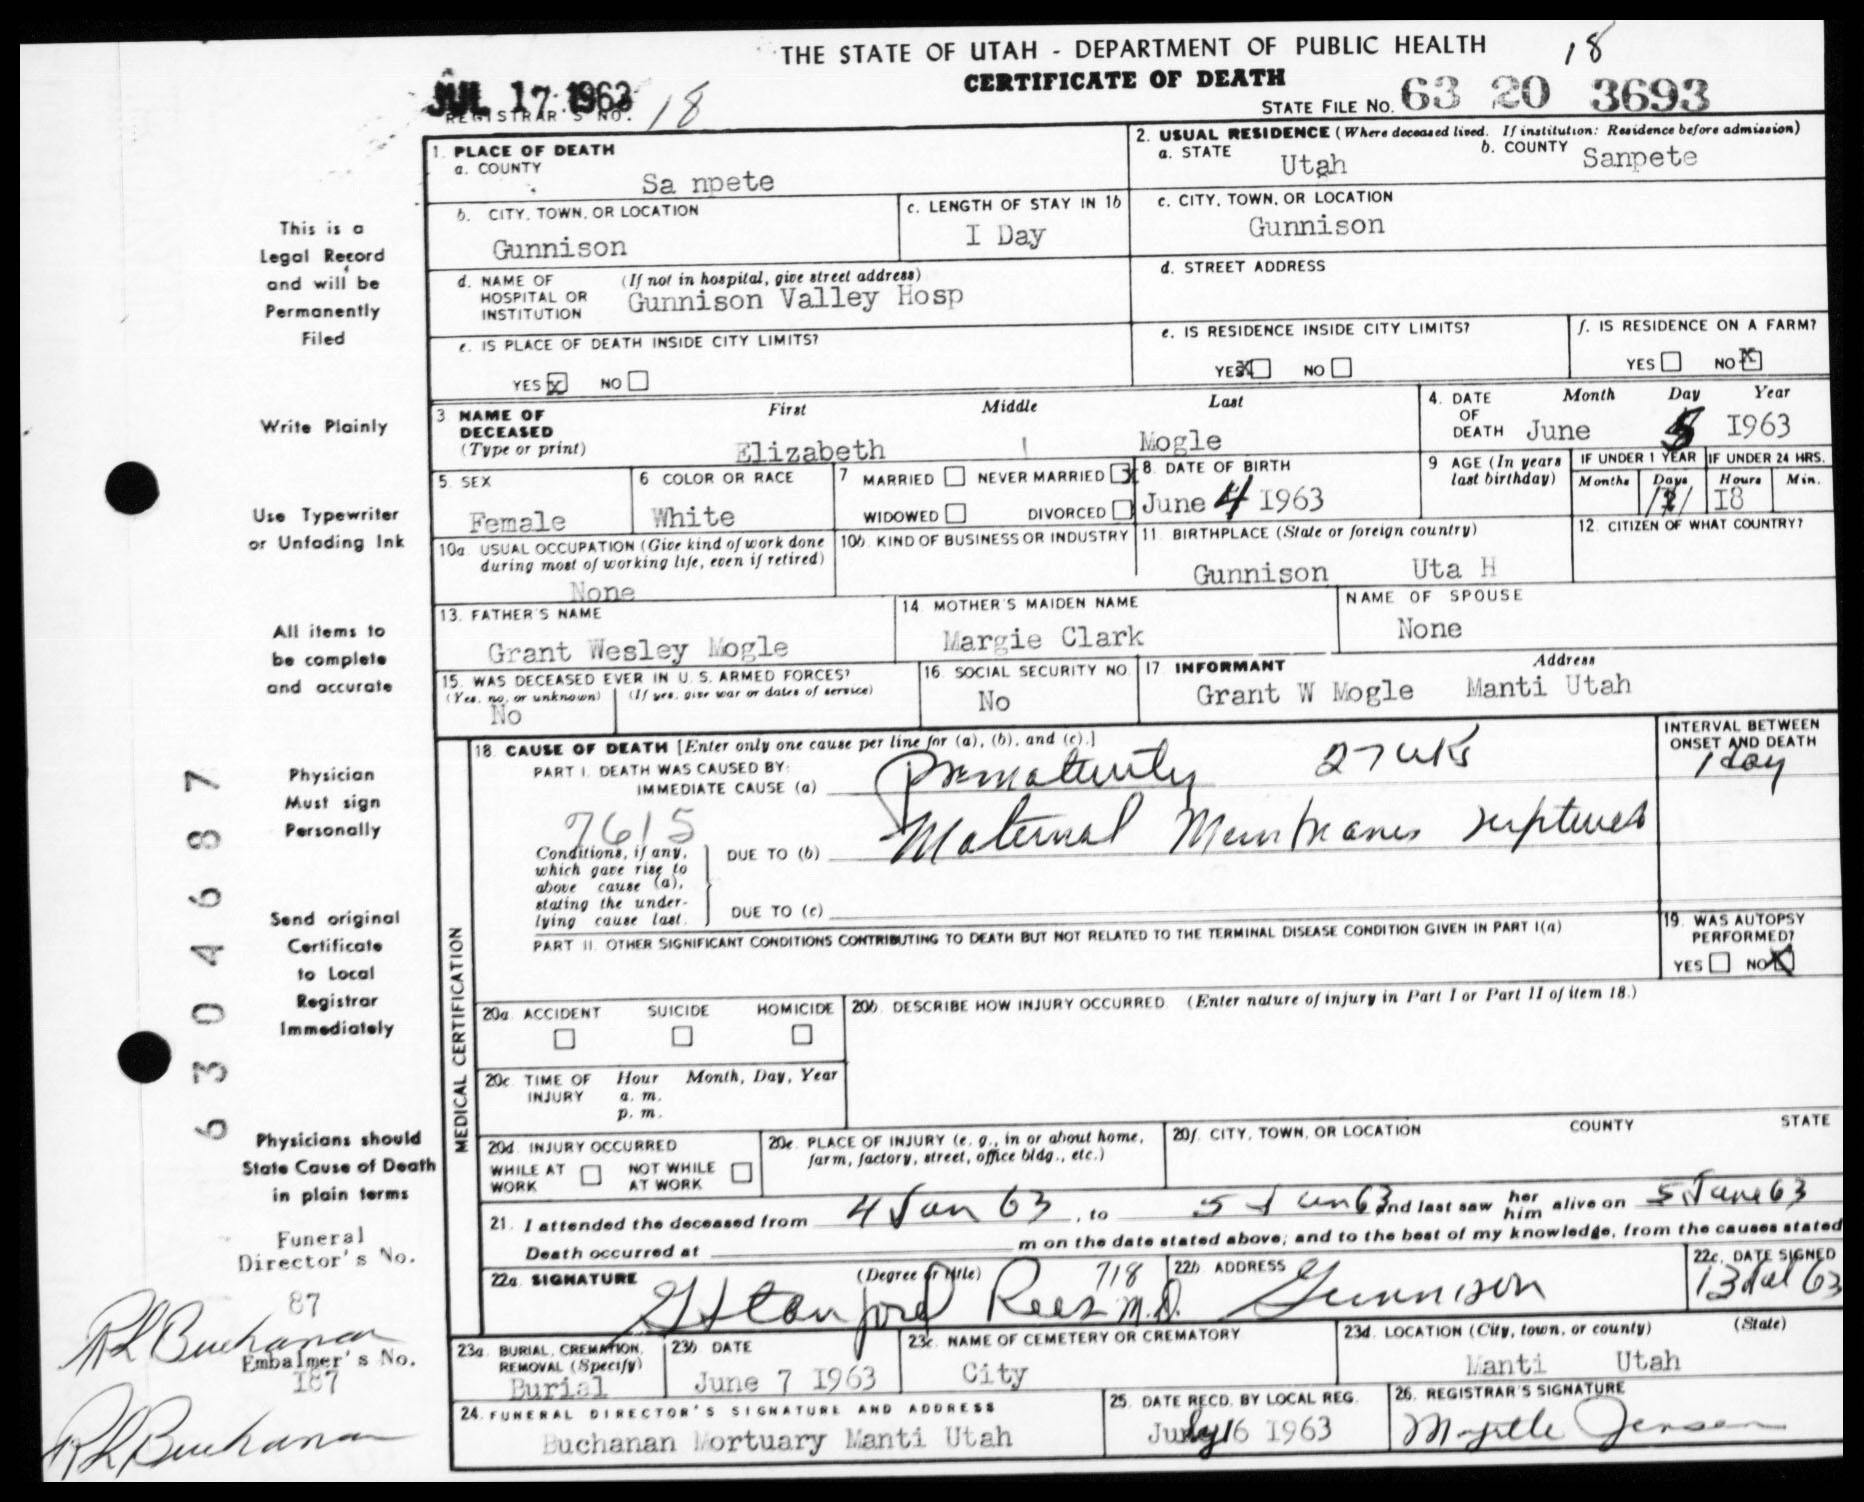 THE STATE OF UTAH - DEPARTMENT OF PUBLIC HEALTH 18
CERTIFICATE OF DEATH
JUL 17 1963
REGISTRAR'S NO. 18
STATE FILE NO. 63 20 3693
1. PLACE OF DEATH
a. COUNTY
Sa npete
2. USUAL RESIDENCE (Where deceased lived. If institution: Residence before admission)
a. STATE Utah b. COUNTY Sanpete
b. CITY, TOWN, OR LOCATION
Gunnison
c. LENGTH OF STAY IN 1b
I Day
c. CITY, TOWN, OR LOCATION
Gunnison
d. NAME OF HOSPITAL OR INSTITUTION (If not in hospital, give street address)
Gunnison Valley Hosp
d. STREET ADDRESS
e. IS PLACE OF DEATH INSIDE CITY LIMITS?
YES X NO
e. IS RESIDENCE INSIDE CITY LIMITS?
YES X NO
f. IS RESIDENCE ON A FARM?
YES NO X
3. NAME OF DECEASED (Type or print)
First Middle Last
Elizabeth Mogle
4. DATE OF DEATH Month Day Year
June 5 I963
5. SEX
Female
6 COLOR OR RACE
White
7 MARRIED NEVER MARRIED X
WIDOWED DIVORCED
8. DATE OF BIRTH
June 4 I963
9 AGE (In years last birthday)
IF UNDER 1 YEAR IF UNDER 24 HRS.
Months Days Hours Min.
I8
10a. USUAL OCCUPATION (Give kind of work done during most of working life, even if retired)
None
10b. KIND OF BUSINESS OR INDUSTRY
11. BIRTHPLACE (State or foreign country)
Gunnison Uta H
12. CITIZEN OF WHAT COUNTRY?
13. FATHER'S NAME
Grant Wesley Mogle
14 MOTHER'S MAIDEN NAME
Margie Clark
NAME OF SPOUSE
None
15. WAS DECEASED EVER IN U. S. ARMED FORCES?
(Yes, no, or unknown) (If yes, give war or dates of service)
No
16 SOCIAL SECURITY NO.
No
17 INFORMANT Address
Grant W Mogle Manti Utah
MEDICAL CERTIFICATION
18. CAUSE OF DEATH [Enter only one cause per line for (a), (b), and (c).]
INTERVAL BETWEEN ONSET AND DEATH
PART I. DEATH WAS CAUSED BY:
IMMEDIATE CAUSE (a) Prematurity 27 wks 1 day
7615
Conditions, if any, which gave rise to above cause (a), stating the underlying cause last.
DUE TO (b) Maternal Membranes ruptured
DUE TO (c)
PART II. OTHER SIGNIFICANT CONDITIONS CONTRIBUTING TO DEATH BUT NOT RELATED TO THE TERMINAL DISEASE CONDITION GIVEN IN PART I(a)
19. WAS AUTOPSY PERFORMED?
YES NO X
20a. ACCIDENT SUICIDE HOMICIDE
20b. DESCRIBE HOW INJURY OCCURRED. (Enter nature of injury in Part I or Part II of item 18.)
20c. TIME OF INJURY Hour Month, Day, Year
a. m.
p. m.
20d. INJURY OCCURRED
WHILE AT WORK NOT WHILE AT WORK
20e. PLACE OF INJURY (e. g., in or about home, farm, factory, street, office bldg., etc.)
20f. CITY, TOWN, OR LOCATION COUNTY STATE
21. I attended the deceased from 4 Jun 63, to 5 Jun 63 and last saw her him alive on 5 June 63
Death occurred at m on the date stated above; and to the best of my knowledge, from the causes stated
22a. SIGNATURE (Degree or title) 718
G Stanford Rees M.D.
22b. ADDRESS
Gunnison
22c. DATE SIGNED
13 Jul 63
23a. BURIAL, CREMATION, REMOVAL (Specify)
Burial
23b DATE
June 7 I963
23c. NAME OF CEMETERY OR CREMATORY
City
23d. LOCATION (City, town, or county) (State)
Manti Utah
24. FUNERAL DIRECTOR'S SIGNATURE AND ADDRESS
Buchanan Mortuary Manti Utah
25. DATE RECD. BY LOCAL REG.
July 16 I963
26. REGISTRAR'S SIGNATURE
Myrtle Jensen
This is a
Legal Record
and will be
Permanently
Filed
Write Plainly
Use Typewriter
or Unfading Ink
All items to
be complete
and accurate
Physician
Must sign
Personally
Send original
Certificate
to Local
Registrar
Immediately
Physicians should
State Cause of Death
in plain terms
Funeral
Director's No.
87
RL Buchanan
Embalmer's No.
I87
RL Buchanan
6304687